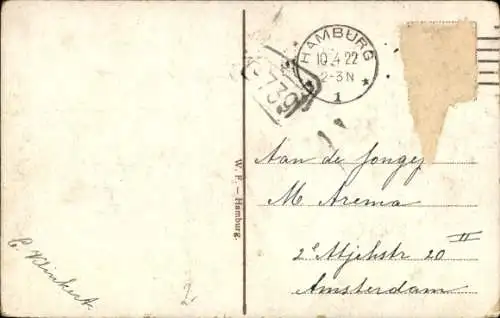 HAMBURG
10.4.22
2-3N
1
739
W. F. — Hamburg.
Aan de Jongej
M Arema
2e Atjehstr 20 II
Amsterdam
C. Klinkert.